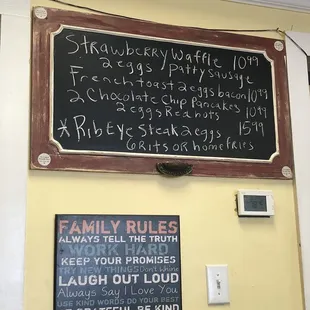 Strawberry Waffle 10.99
2 eggs patty sausage
French toast 2 eggs bacon 10.99
2 Chocolate Chip Pancakes
2 eggs Redhots 10.99
*RibEye Steak 2 eggs 15.99
Grits or home fries
FAMILY RULES
ALWAYS TELL THE TRUTH
WORK HARD
KEEP YOUR PROMISES
TRY NEW THINGS Don't Whine
LAUGH OUT LOUD
Always Say I Love You
USE KIND WORDS DO YOUR BEST
BE GRATEFUL BE KIND